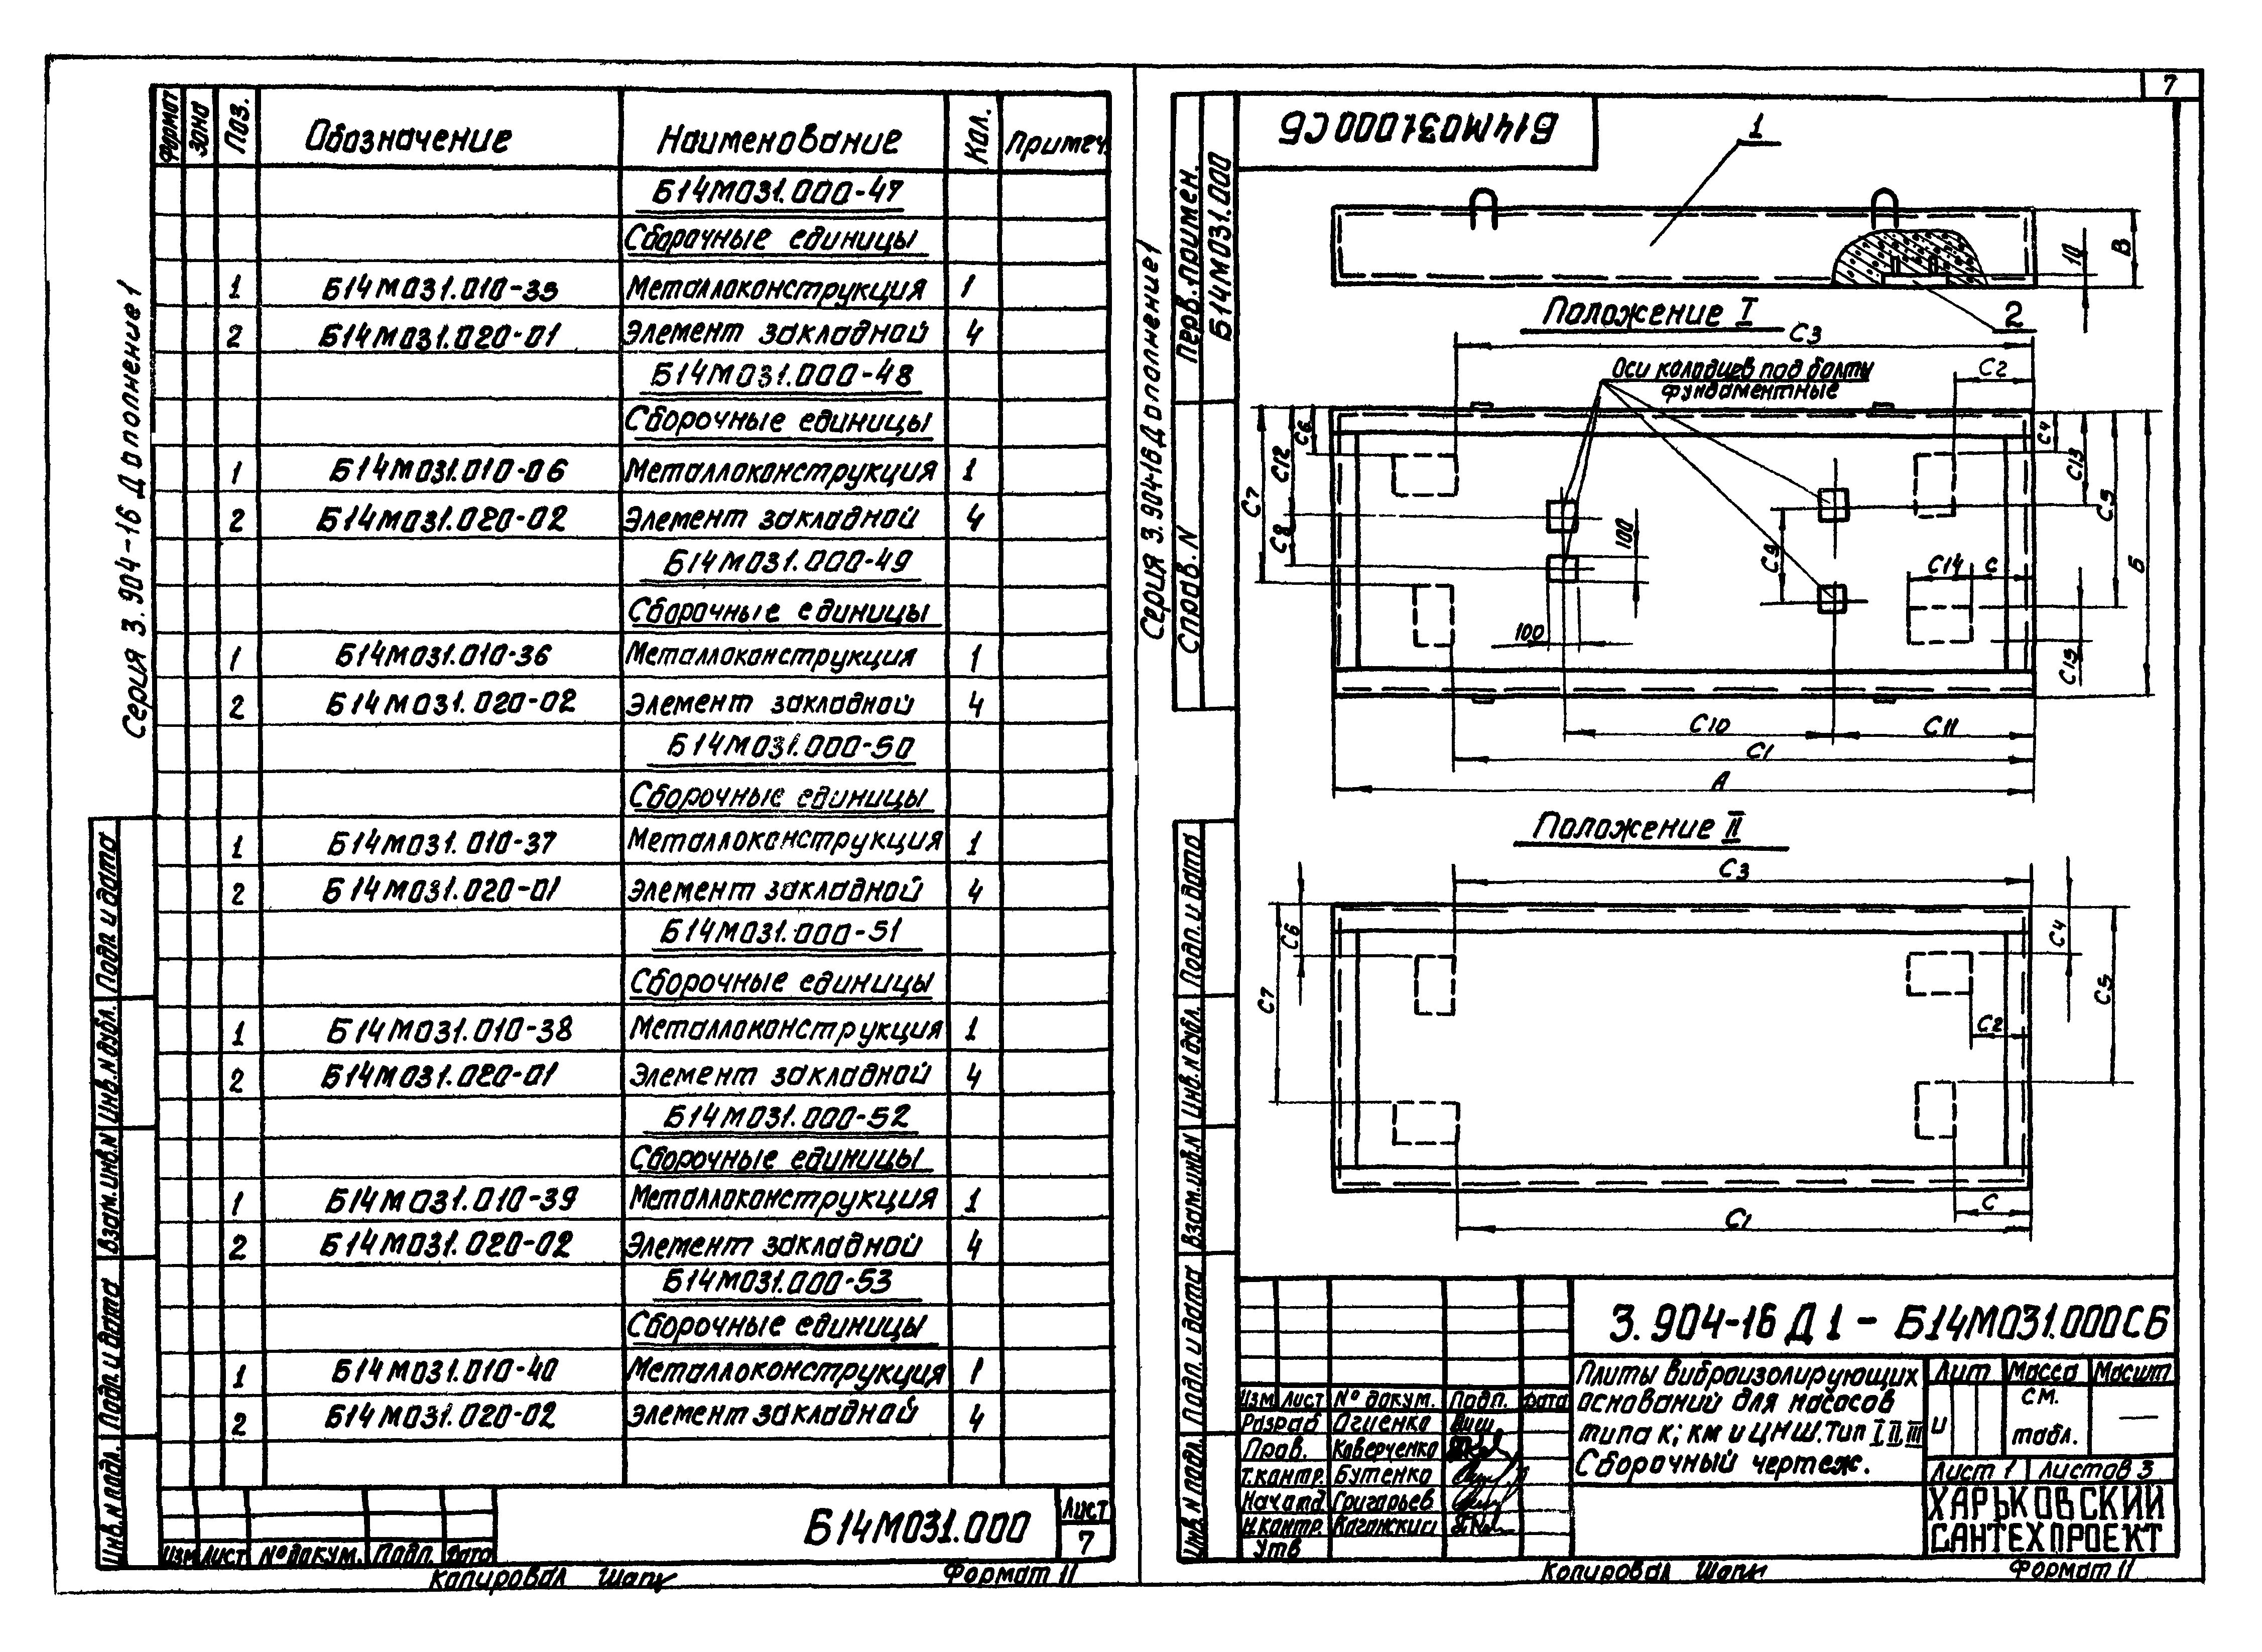 Серия 3.904-16 Дополнение 1
Формат Зона Поз. Обозначение Наименование Кол. Примеч.
Б14М031.000-47
Сборочные единицы
1 Б14М031.010-35 Металлоконструкция 1
2 Б14М031.020-01 Элемент закладной 4
Б14М031.000-48
Сборочные единицы
1 Б14М031.010-06 Металлоконструкция 1
2 Б14М031.020-02 Элемент закладной 4
Б14М031.000-49
Сборочные единицы
1 Б14М031.010-36 Металлоконструкция 1
2 Б14М031.020-02 Элемент закладной 4
Б14М031.000-50
Сборочные единицы
1 Б14М031.010-37 Металлоконструкция 1
2 Б14М031.020-01 Элемент закладной 4
Б14М031.000-51
Сборочные единицы
1 Б14М031.010-38 Металлоконструкция 1
2 Б14М031.020-01 Элемент закладной 4
Б14М031.000-52
Сборочные единицы
1 Б14М031.010-39 Металлоконструкция 1
2 Б14М031.020-02 Элемент закладной 4
Б14М031.000-53
Сборочные единицы
1 Б14М031.010-40 Металлоконструкция 1
2 Б14М031.020-02 Элемент закладной 4
Инв.N подл. Подп. и дата Взам.инв.N Инв.N дубл. Подп. и дата
Изм Лист № докум. Подп. Дата
Б14М031.000
Лист
7
Копировал
Формат 11
7
Серия 3.904-16 Дополнение 1
Перв. примен.
Б14М031.000
Справ. N
Б14М031.000СБ
1
10
В
2
Положение I
С3
Оси колодцев под болты
фундаментные
С2
С6
С12
С7
С8
С4
С13
С5
С9
100
С14
С
Б
100
С15
С10
С11
С1
А
Положение II
С3
С6
С7
С4
С5
С2
С
С1
Инв. N подл. Подп. и дата Взам.инв.N Инв. N дубл. Подп. и дата
3.904-16 Д1 - Б14М031.000СБ
Плиты виброизолирующих
оснований для насосов
типа к; км и ЦНШ. Тип I II, III
Сборочный чертеж.
Лит Масса Масшт
И
см.
табл.
—
Лист 1 Листов 3
ХАРЬКОВСКИЙ
САНТЕХПРОЕКТ
Изм Лист № докум. Подп. Дата
Разраб Огиенко
Пров. Коверченко
Т.контр. Бутенко
Нач отд Григорьев
Н.контр. Каганский
Утв
Копировал
Формат 11